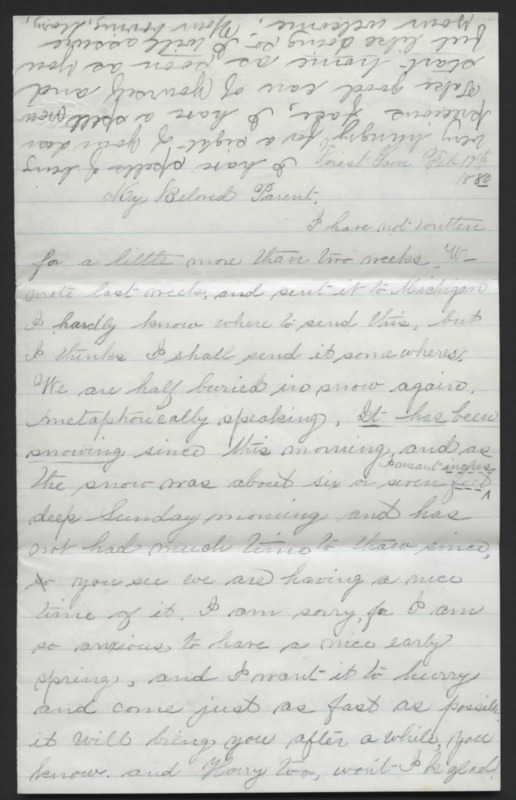 Forest Grove Feb 17th
1880
My Beloved Parent,
I have not written
for a little more than two weeks. W—
wrote last week, and sent it to Michigan
I hardly know where to send this, but
I thinks I shall send it somewheres.
We are half buried in snow again,
metaphorically speaking, It has been
snowing since this morning, and as
I meant inches
the snow was about six or seven feet
deep Sunday morning and has
not had much time to thaw since,
so you see we are having a nice
time of it. I am sorry, for I am
so anxious to have a nice early
spring, and I want it to hurry
and come just as fast as possible
it will bring you after a while, you
know. and Horry too, won't I be glad.
I have spells of being
very hungry for a sight of your dear
precious face, I have a spell now
Take good care of yourself and
start home as soon as you
feel like doing so I will assure
your welcome. Your loving, Mary,